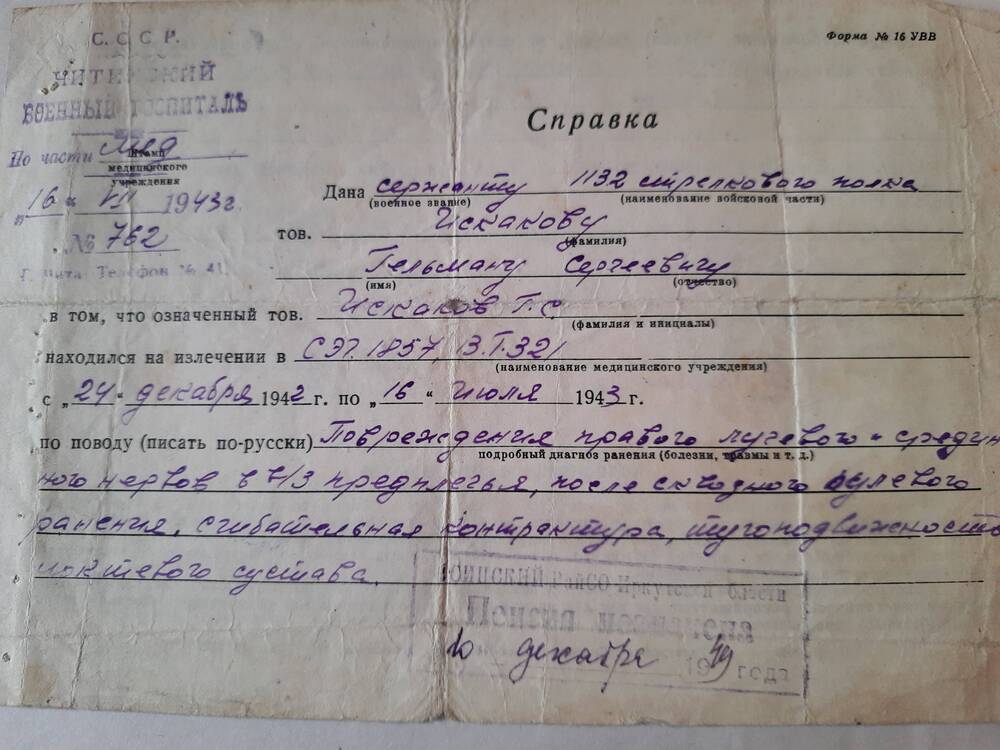 С. С. С Р.
Форма № 16 УВВ
ЧИТИНСКИЙ
ВОЕННЫЙ ГОСПИТАЛЬ
Справка
По части Мед
Штамп
медицинского
учреждения
"16" VII 1943 г.
№ 762
г. Чита. Телефон № 41
Дана сержанту 1132 стрелкового полка
(военное звание) (наименование войсковой части)
тов. Искакову
(фамилия)
Гельману Сергеевичу
(имя) (отчество)
в том, что означенный тов. Искаков Г. С.
(фамилия и инициалы)
находился на излечении в СЭГ. 1857,
(наименование медицинского учреждения)
с „24" декабря 1942 г. по „16" Июля 1943 г.
по поводу (писать по-русски) Повреждения правого лучевого и средин
подробный диагноз ранения (болезни, травмы и т. д.)
ного нервов в н/3 предплечья, после сквозного пулевого
ранения, сгибательная контрактура, тугоподвижность
сустава.
РайСО Иркутской области
Пенсия назначена
10 декабря 1949 года